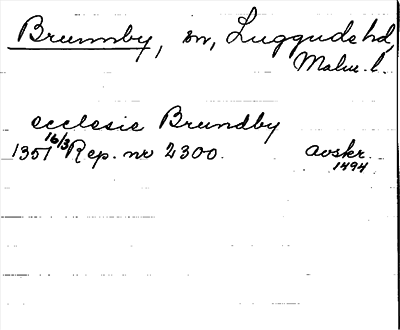 Brunnby, sn, Luggude hd,
Malm. l.
ecclesie Brundby
1357 16/3 Rep. nr 2300. avskr.
1494